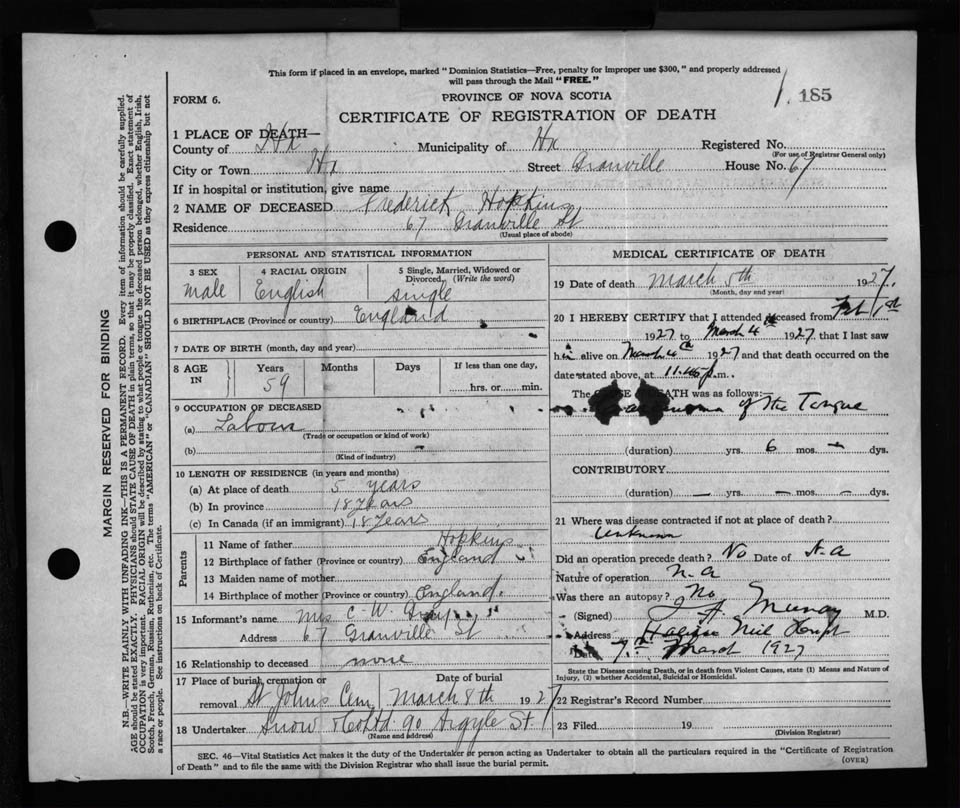 This form if placed in an envelope, marked "Dominion Statistics—Free, penalty for improper use $300," and properly addressed
will pass through the Mail "FREE."
FORM 6.
PROVINCE OF NOVA SCOTIA
185
CERTIFICATE OF REGISTRATION OF DEATH
1 PLACE OF DEATH—
County of Hx Municipality of Hx Registered No.
(For use of Registrar General only)
City or Town Hx Street Granville House No. 67
If in hospital or institution, give name
2 NAME OF DECEASED Frederick Hopkins
Residence 67 Granville St
(Usual place of abode)
PERSONAL AND STATISTICAL INFORMATION
3 SEX 4 RACIAL ORIGIN 5 Single, Married, Widowed or Divorced. (Write the word)
male English single
6 BIRTHPLACE (Province or country) England
7 DATE OF BIRTH (month, day and year)
8 AGE IN Years Months Days If less than one day,
59 hrs. or min.
9 OCCUPATION OF DECEASED
(a) Labour
(Trade or occupation or kind of work)
(b) —
(Kind of industry)
10 LENGTH OF RESIDENCE (in years and months)
(a) At place of death 5 years
(b) In province 18 years
(c) In Canada (if an immigrant) 18 years
Parents
11 Name of father Hopkins
12 Birthplace of father (Province or country) England
13 Maiden name of mother
14 Birthplace of mother (Province or country) England.
15 Informant's name Mrs C. W.
Address 67 Granville St
16 Relationship to deceased none
17 Place of burial, cremation or removal Date of burial
St Johns Cem March 8th 1927
18 Undertaker Snow & Co Ltd 90 Argyle St.
(Name and address)
MEDICAL CERTIFICATE OF DEATH
19 Date of death March 5th 1927.
(Month, day and year)
20 I HEREBY CERTIFY that I attended deceased from Feb 1st
1927 to March 4th 1927 that I last saw
him alive on March 4th 1927 and that death occurred on
date stated above, at 11.45 p.m.
The CAUSE OF DEATH was as follows:—
Carcinoma of the Tongue
(duration) yrs. 6 mos. — dys.
CONTRIBUTORY
(duration) — yrs. — mos. — dys.
21 Where was disease contracted if not at place of death?
Unknown
Did an operation precede death? No Date of N.A
Nature of operation N.A
Was there an autopsy? No
(Signed) Murray M.D.
Address Halifax
7th March 1927
State the Disease causing Death, or in death from Violent Causes, state (1) Means and Nature of
Injury, (2) whether Accidental, Suicidal or Homicidal.
22 Registrar's Record Number
23 Filed 19
(Division Registrar)
SEC. 46—Vital Statistics Act makes it the duty of the Undertaker or person acting as Undertaker to obtain all the particulars required in the "Certificate of Registration
of Death" and to file the same with the Division Registrar who shall issue the burial permit.
(OVER)
MARGIN RESERVED FOR BINDING
N.B.—WRITE PLAINLY WITH UNFADING INK—THIS IS A PERMANENT RECORD. Every item of information should be carefully supplied.
AGE should be stated EXACTLY. PHYSICIANS should STATE CAUSE OF DEATH in plain terms, so that it may be properly classified. Exact statement of
OCCUPATION is very important. RACIAL ORIGIN will be described by stating to what people or tongue the deceased person belonged, whether English, Irish,
Scotch, French, German, Russian, Ruthenian, etc. The terms "AMERICAN" or "CANADIAN" SHOULD NOT BE USED as they express citizenship but not
a race or people. See instructions on back of Certificate.